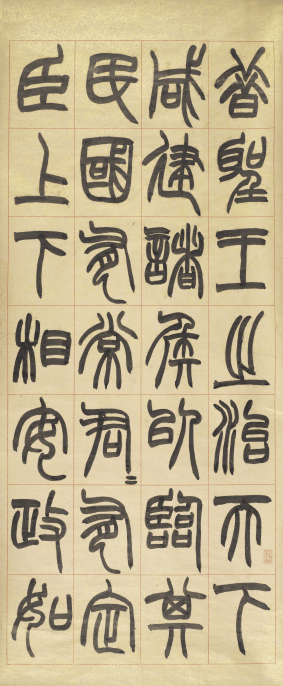 昔聖王之治天下
咸建諸侯以臨其
民國有常君〻有定
臣上下相安政如